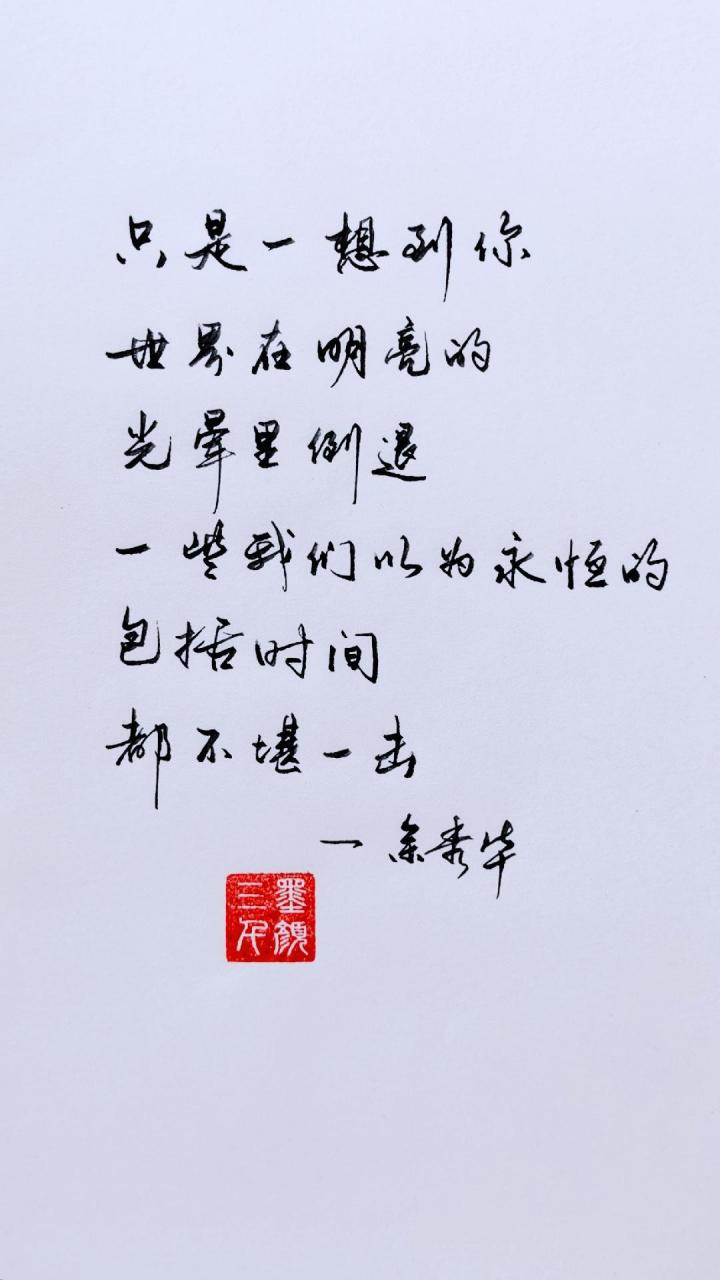 只是一想到你
世界在明亮的
光晕里倒退
一些我们以为永恒的
包括时间
都不堪一击
一余秀华
墨颜
三千